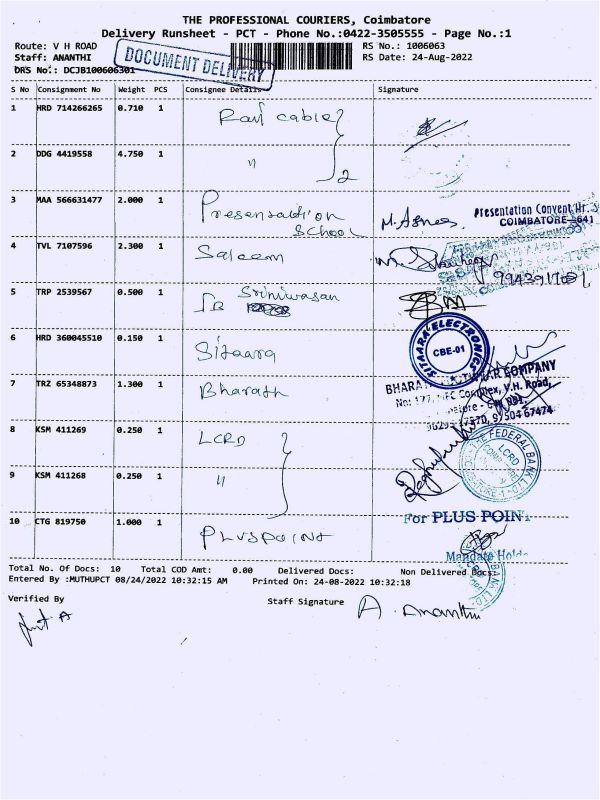 THE PROFESSIONAL COURIERS, Coimbatore
Delivery Runsheet - PCT - Phone No.:0422-3505555 - Page No.:1
Route: V H ROAD
RS No.: 1006063
Staff: ANANTHI
RS Date: 24-Aug-2022
DRS No.: DCJB100606301
DOCUMENT DELIVERY
S No Consignment No Weight PCS Consignee Details Signature
1 HRD 714266265 0.710 1 Ravi cable
2 DDG 4419558 4.750 1 " 2
3 MAA 566631477 2.000 1 Presentation
School
M. Agnes
Presentation Convent Hr. S
COIMBATORE-641
4 TVL 7107596 2.300 1 Saleem
5 TRP 2539567 0.500 1 Srinivasan
6 HRD 360045510 0.150 1 Sitaara
SITAARA ELECTRONICS
CBE-01
7 TRZ 65348873 1.300 1 Bharath
COMPANY
V.H. Road,
97504 67474
8 KSM 411269 0.250 1 LCRD
THE FEDERAL BANK LTD
LCRD
9 KSM 411268 0.250 1 "
10 CTG 819750 1.000 1 Pluspoint
For PLUS POINT
Mandate Holde
Total No. Of Docs: 10 Total COD Amt: 0.00 Delivered Docs: Non Delivered Docs:
Entered By :MUTHUPCT 08/24/2022 10:32:15 AM Printed On: 24-08-2022 10:32:18
Verified By
Staff Signature A. Ananthi